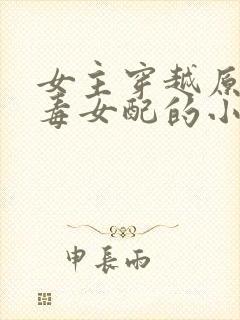 女主穿越原
毒女配的小
申長雨